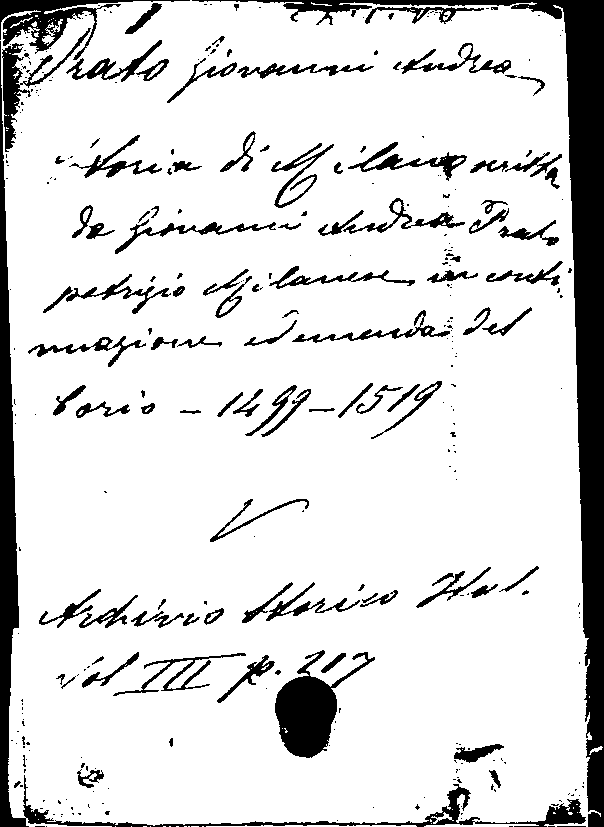 Prato Giovanni Andrea
Storia di Milano scritta
da Giovanni Andrea Prato
patrizio Milanese in conti
nuazione ed emenda del
Corio - 1499-1519
V
Archivio Storico Ital.
Vol III p. 217